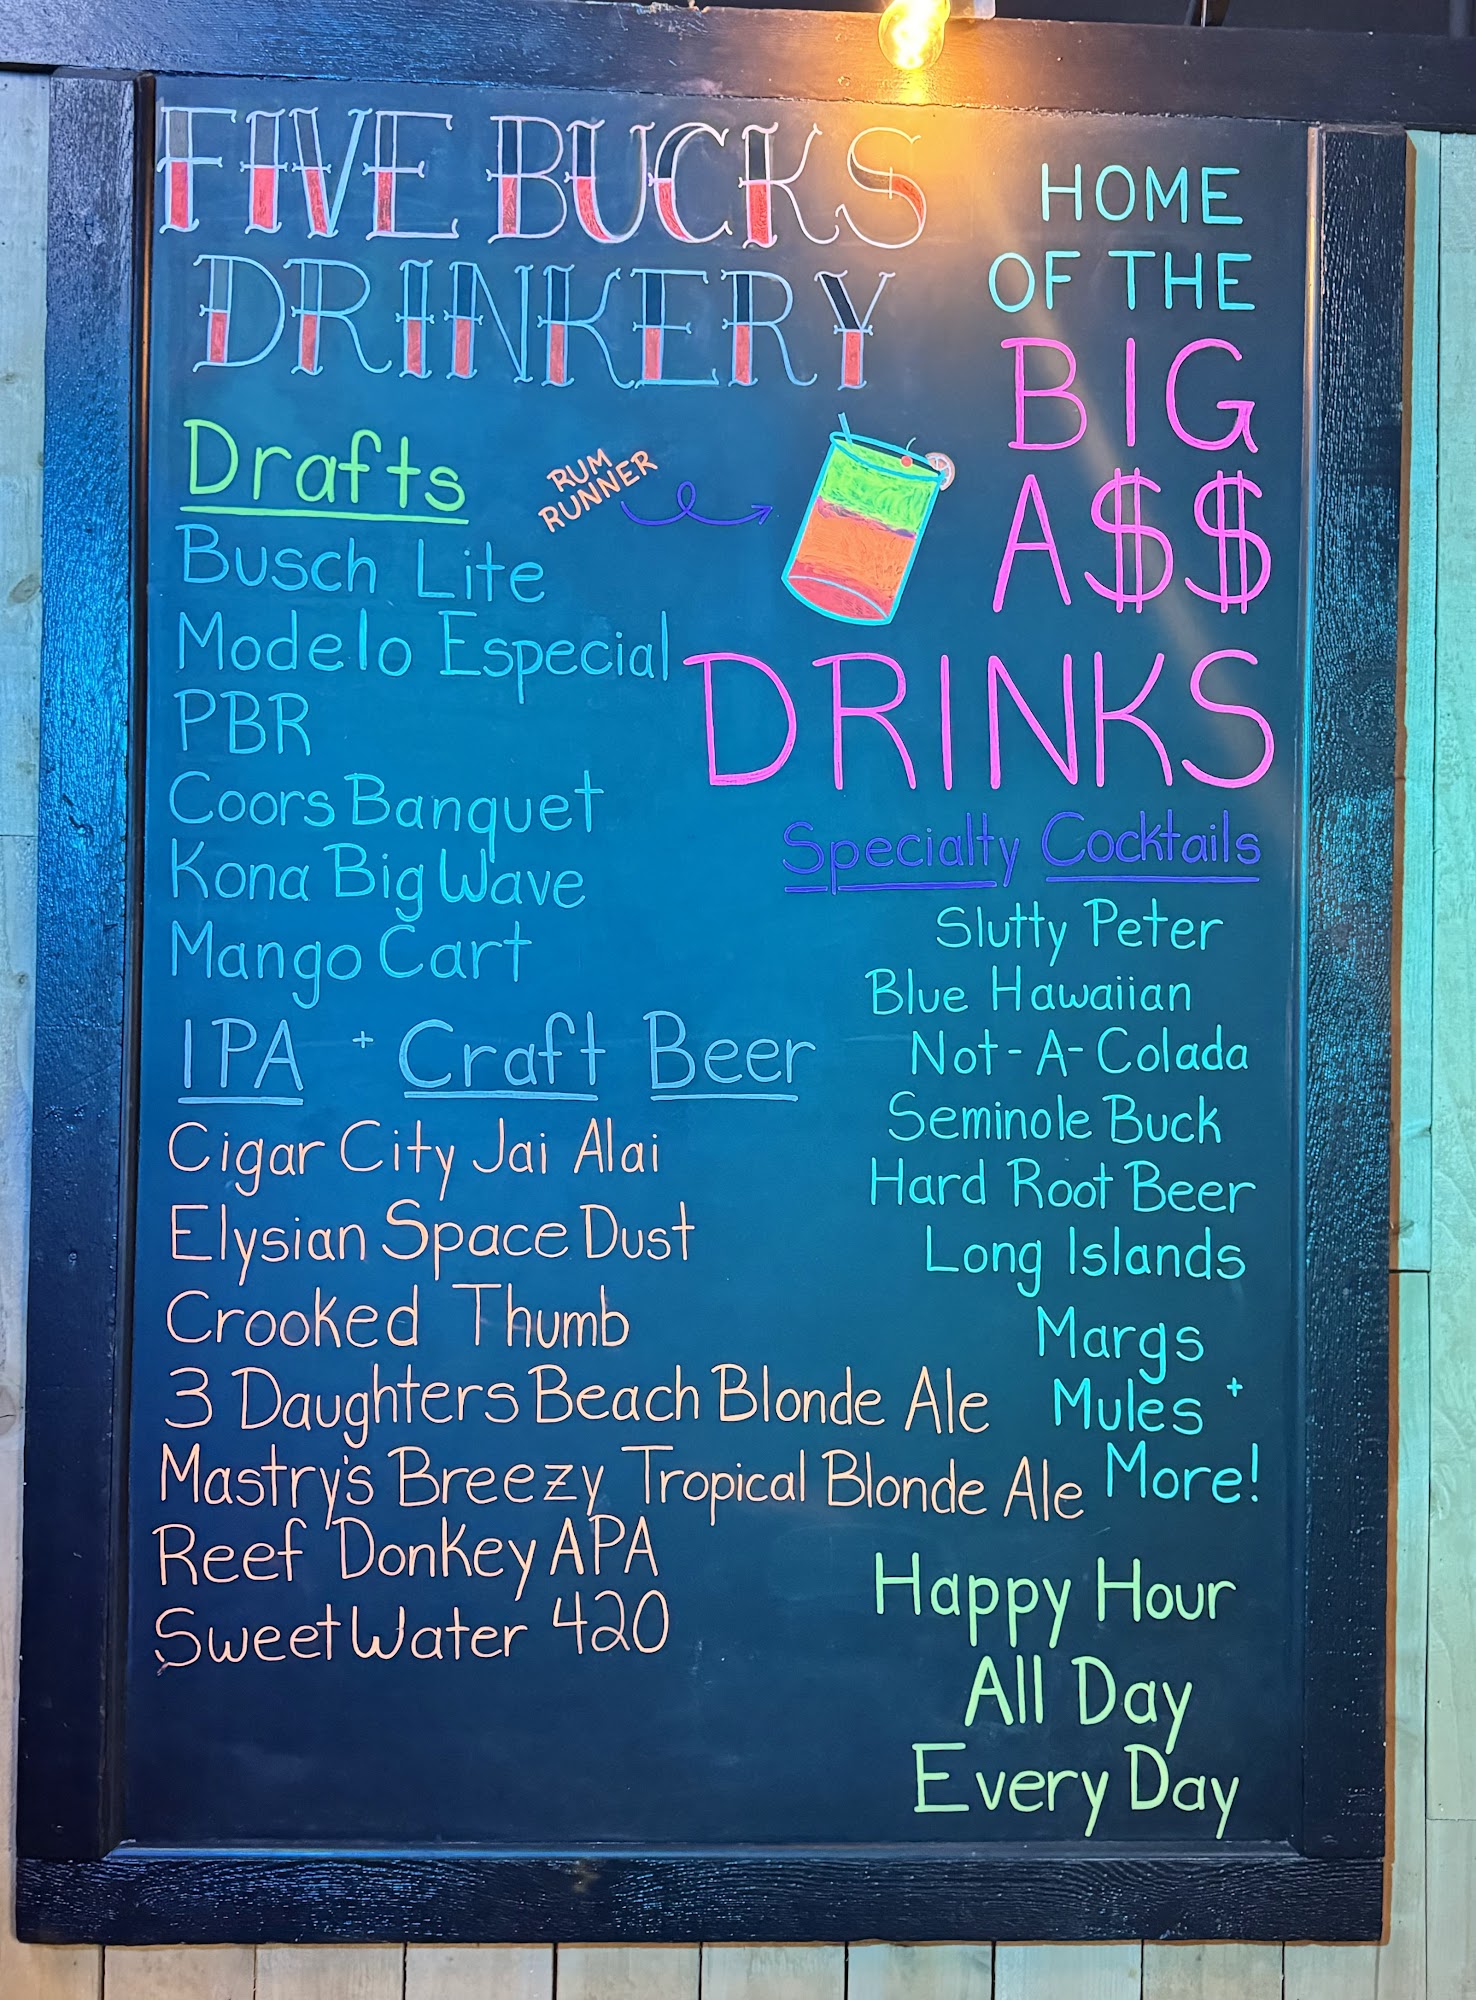 FIVE BUCKS
DRINKERY
HOME
OF THE
BIG
A$$
DRINKS
RUM
RUNNER
Drafts
Busch Lite
Modelo Especial
PBR
Coors Banquet
Kona Big Wave
Mango Cart
IPA + Craft Beer
Cigar City Jai Alai
Elysian Space Dust
Crooked Thumb
3 Daughters Beach Blonde Ale
Mastry's Breezy Tropical Blonde Ale
Reef Donkey APA
SweetWater 420
Specialty Cocktails
Slutty Peter
Blue Hawaiian
Not-A-Colada
Seminole Buck
Hard Root Beer
Long Islands
Margs
Mules +
More!
Happy Hour
All Day
Every Day